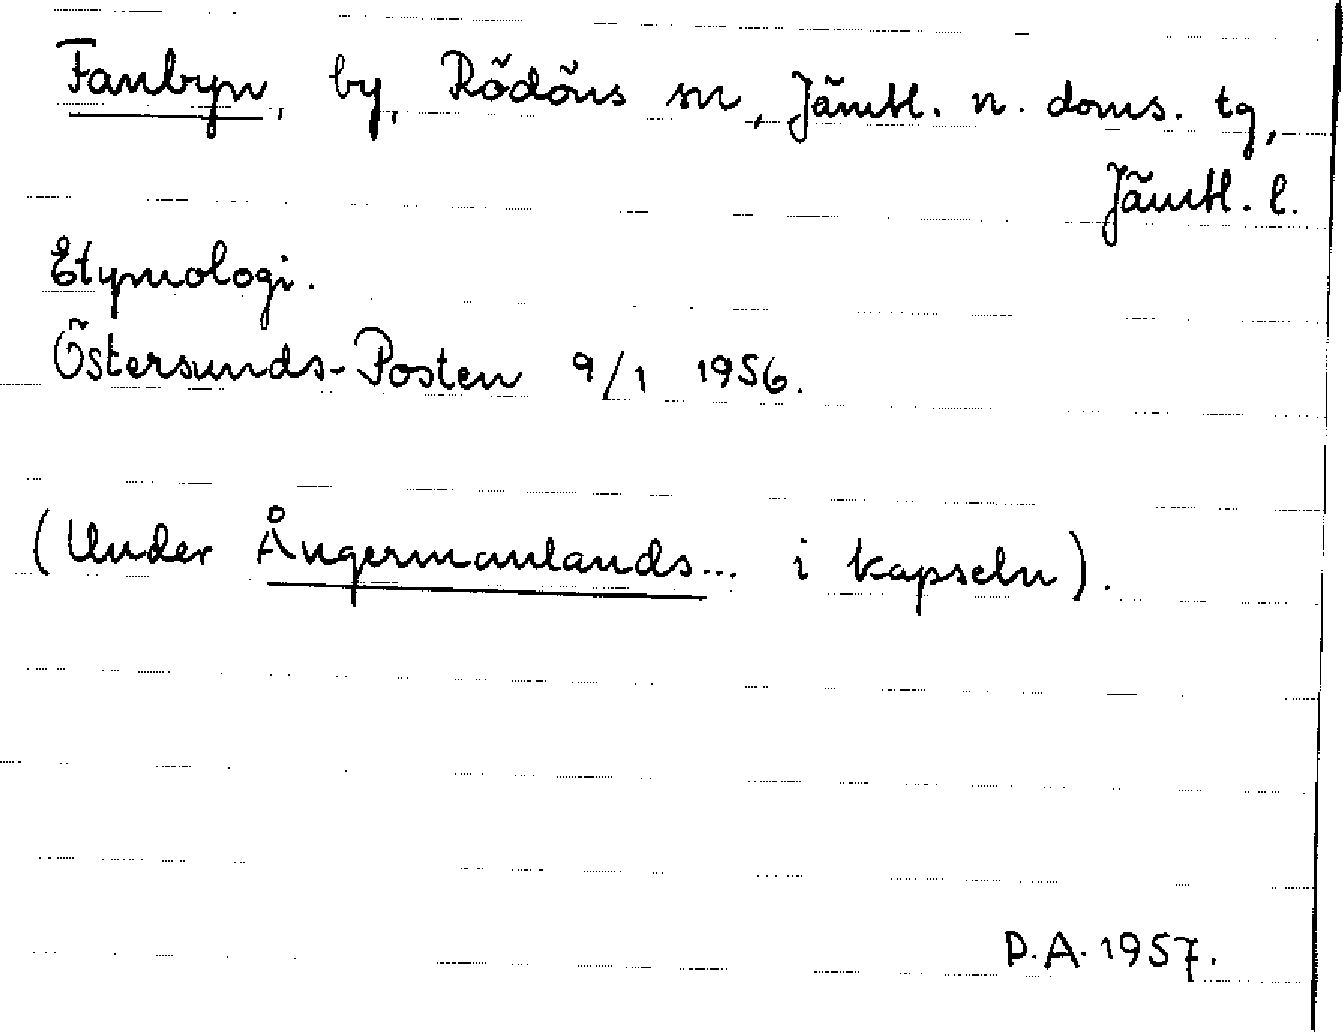 Fanbyn, by, Rödöns sn, Jämtl. n. doms. tg,
Jämtl. l.
Etymologi.
Östersunds-Posten 9/1 1956.
(Under Ångermanlands... i kapseln).
D.A. 1957.